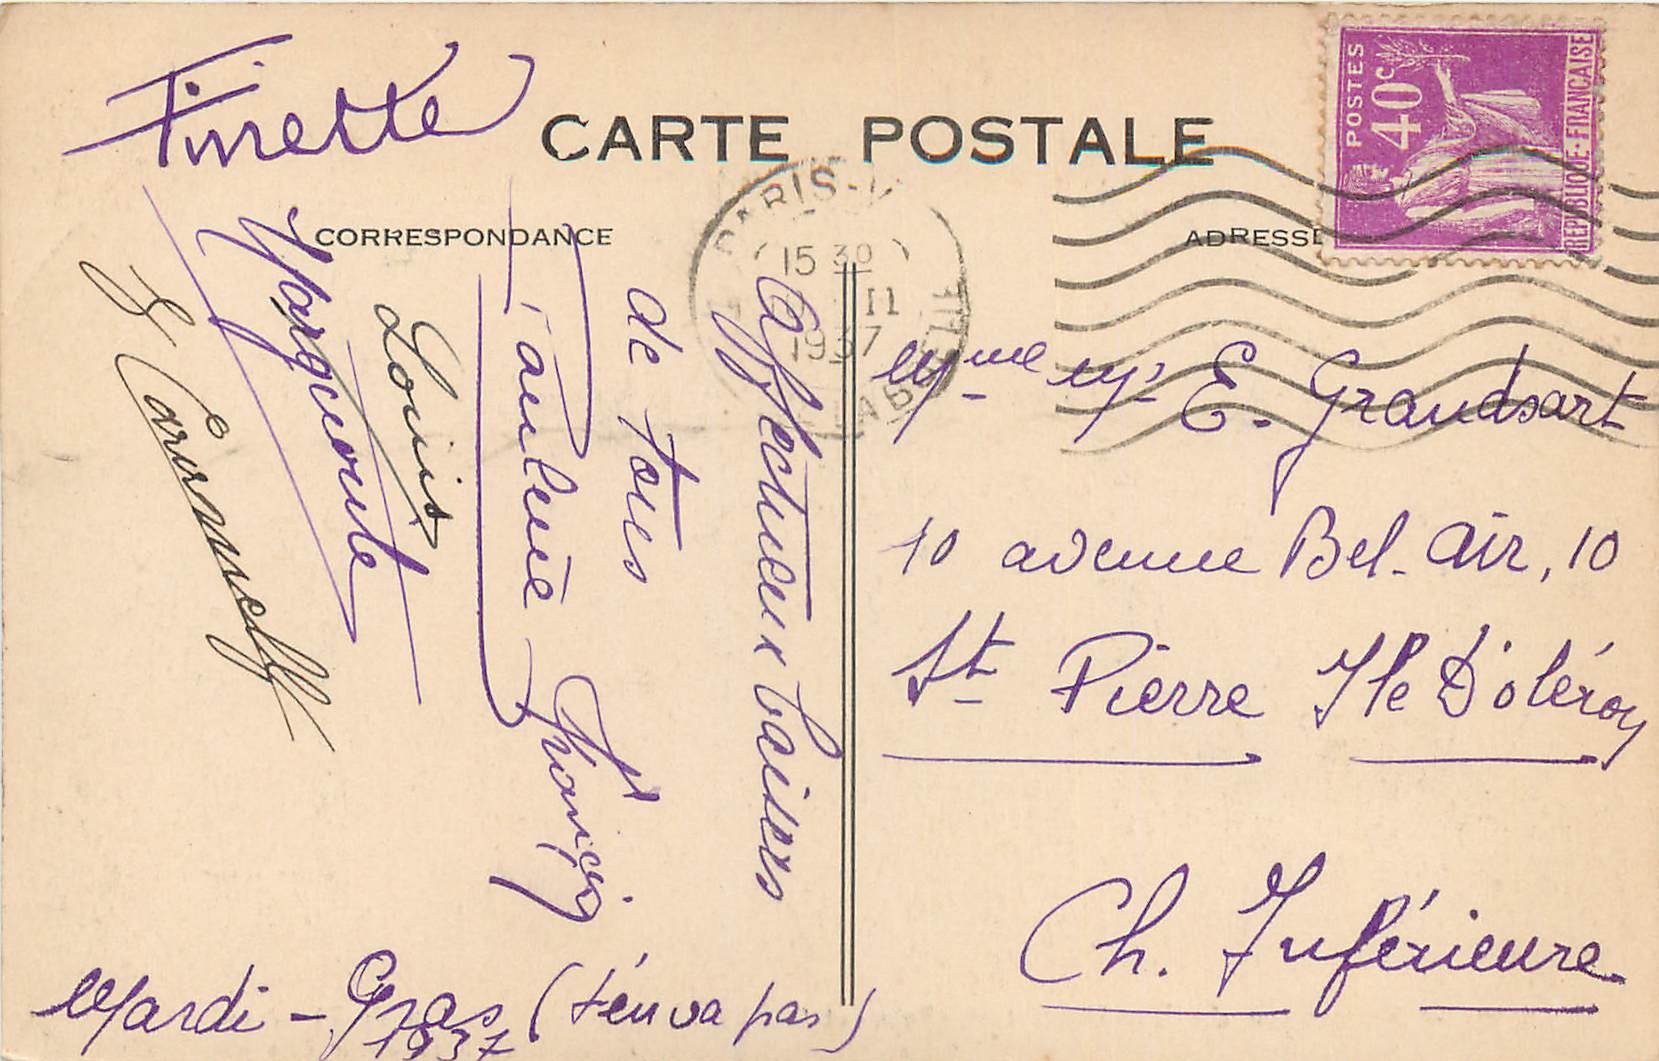 Finette
CARTE POSTALE
CORRESPONDANCE
ADRESSE
POSTES
40c
REPUBLIQUE-FRANÇAISE
PARIS
15 30
II
1937
Affectueux baisers
de tous
Paulette
Louis
Marguerite
Mme Mr E. Grandsart
10 avenue Bel-air, 10
St Pierre Ile D'oléron
Ch. Inférieure
Mardi-Gras (t'en va pas)
1937